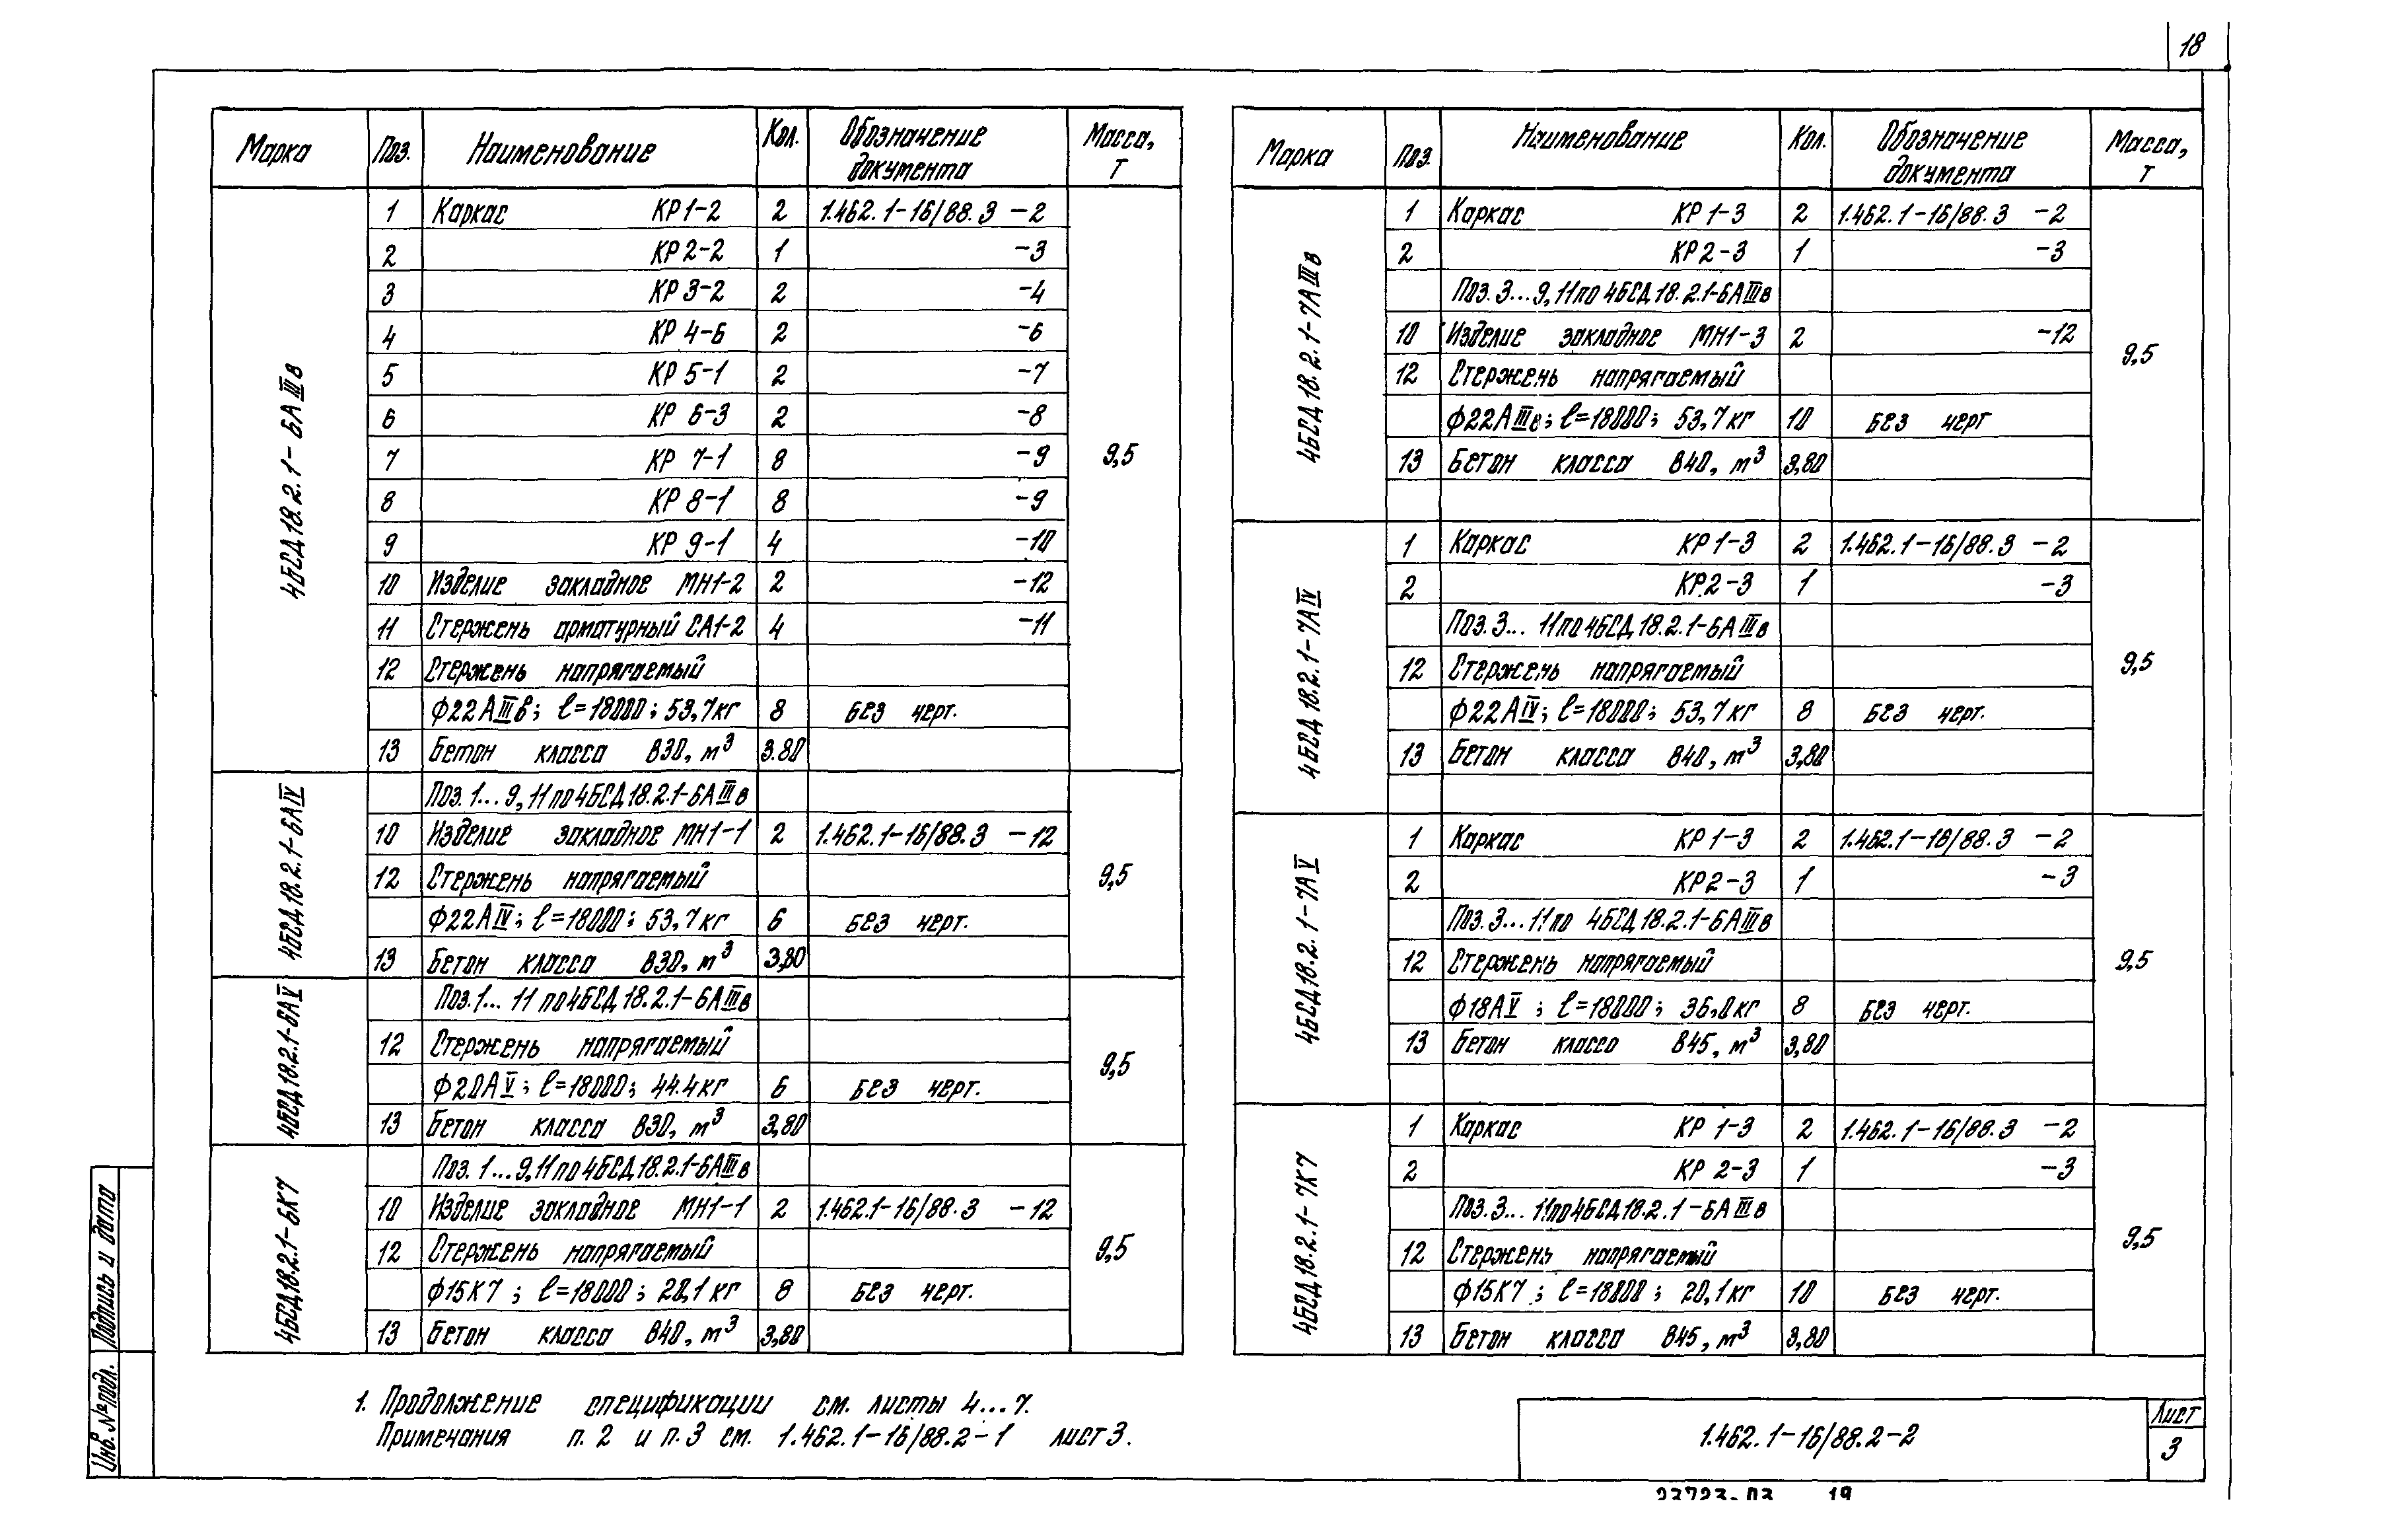 18
Марка Поз. Наименование Кол. Обозначение документа Масса, т
4БСД18.2.1-6АIIIв
1 Каркас КР1-2 2 1.462.1-16/88.3 -2
2 КР2-2 1 -3
3 КР3-2 2 -4
4 КР4-6 2 -6
5 КР5-1 2 -7
6 КР 6-3 2 -8
7 КР 7-1 8 -9
8 КР 8-1 8 -9
9 КР 9-1 4 -10
10 Изделие закладное МН1-2 2 -12
11 Стержень арматурный СА1-2 4 -11
12 Стержень напрягаемый
Ф22АIIIв; ℓ=18000; 53,7кг 8 без черт.
13 Бетон класса В30, м³ 3.80
9,5
4БСД18.2.1-6АIV
Поз. 1...9, 11 по 4БСД18.2.1-6АIIIв
10 Изделие закладное МН1-1 2 1.462.1-16/88.3 -12
12 Стержень напрягаемый
Ф22АIV; ℓ=18000; 53,7кг 6 без черт.
13 Бетон класса В30, м³ 3,80
9,5
4БСД18.2.1-6АV
Поз. 1... 11 по 4БСД18.2.1-6АIIIв
12 Стержень напрягаемый
Ф20АV; ℓ=18000; 44.4кг 6 без черт.
13 Бетон класса В30, м³ 3,80
9,5
4БСД18.2.1-6К7
Поз. 1...9,11 по 4БСД18.2.1-6АIIIв
10 Изделие закладное МН1-1 2 1.462.1-16/88.3 -12
12 Стержень напрягаемый
Ф15К7; ℓ=18000; 20,1кг 8 без черт.
13 Бетон класса В40, м³ 3,80
9,5
Марка Поз. Наименование Кол. Обозначение документа Масса, т
4БСД18.2.1-7АIIIв
1 Каркас КР1-3 2 1.462.1-16/88.3 -2
2 КР2-3 1 -3
Поз. 3...9, 11 по 4БСД18.2.1-6АIIIв
10 Изделие закладное МН1-3 2 -12
12 Стержень напрягаемый
Ф22АIIIв; ℓ=18000; 53,7кг 10 без черт
13 Бетон класса В40, м³ 3,80
9,5
4БСД18.2.1-7АIV
1 Каркас КР1-3 2 1.462.1-16/88.3 -2
2 КР2-3 1 -3
Поз. 3... 11 по 4БСД18.2.1-6АIIIв
12 Стержень напрягаемый
Ф22АIV; ℓ=18000; 53,7кг 8 без черт.
13 Бетон класса В40, м³ 3,80
9,5
4БСД18.2.1-7АV
1 Каркас КР1-3 2 1.462.1-16/88.3 -2
2 КР2-3 1 -3
Поз. 3...11 по 4БСД18.2.1-6АIIIв
12 Стержень напрягаемый
Ф18АV; ℓ=18000; 36,0кг 8 без черт.
13 Бетон класса В45, м³ 3,80
9,5
4БСД18.2.1-7К7
1 Каркас КР 1-3 2 1.462.1-16/88.3 -2
2 КР 2-3 1 -3
Поз. 3... 11 по 4БСД18.2.1-6АIIIв
12 Стержень напрягаемый
Ф15К7; ℓ=18000; 20,1кг 10 без черт.
13 Бетон класса В45, м³ 3,80
9,5
1. Продолжение спецификации см. листы 4...7.
Примечания п. 2 и п. 3 см. 1.462.1-16/88.2-1 лист 3.
Инв. № подл. Подпись и дата
1.462.1-16/88.2-2
Лист
3
23723-03 19